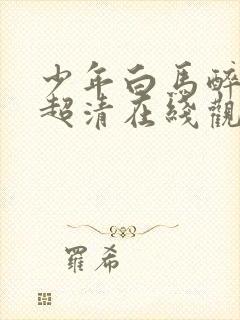 少年白馬醉
超清在綫觀
羅希